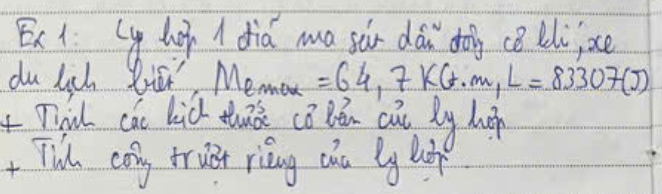 Ex 1: Ly hợp 1 đĩa ma sát dẫn động cơ khí, xe
du lịch biết, Memax = 64,7 KG.m, L = 83307(J)
+ Tính các kích thước cơ bản của ly hợp
+ Tính công trượt riêng của ly hợp